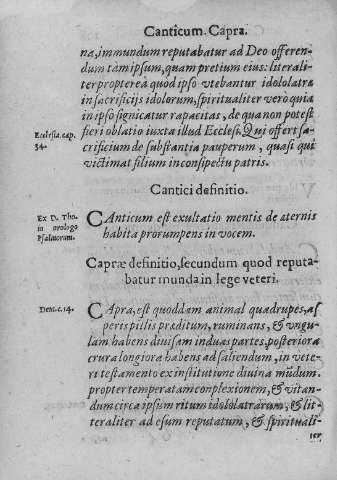 Canticum. Capra.
na, immundum reputabatur ad Deo offeren-
dum tàm ipsum, quam pretium eius: literali-
ter propterea quod ipso vtebantur idololatræ
in sacrificijs idolorum, spiritualiter verò quia
in ipso signicatur rapacitas, de qua non potest
fieri oblatio iuxta illud Ecclesi. Qui offert sa-
Ecclesia. cap.
34.
crificium de substantia pauperum, quasi qui
victimat filium in conspectu patris.
Cantici definitio.
Ex D. Tho.
in prologo
Psalmorum.
CAnticum est exultatio mentis de æternis
habita prorumpens in vocem.
Capræ definitio, secundum quod reputa-
batur munda in lege veteri.
Deut. c. 14.
CApra, est quoddam animal quadrupes, as
peris pillis præditum, ruminans, & vngu
lam habens diuisam in duas partes, posteriora
crura longiora habens ad saliendum, in vete-
ri testamento ex institutione diuina mũdum.
propter temperatam complexionem, & vitan-
dum circa ipsum ritum idololatrarum, & lit-
teraliter ad esum reputatum, & spirituali-
ter